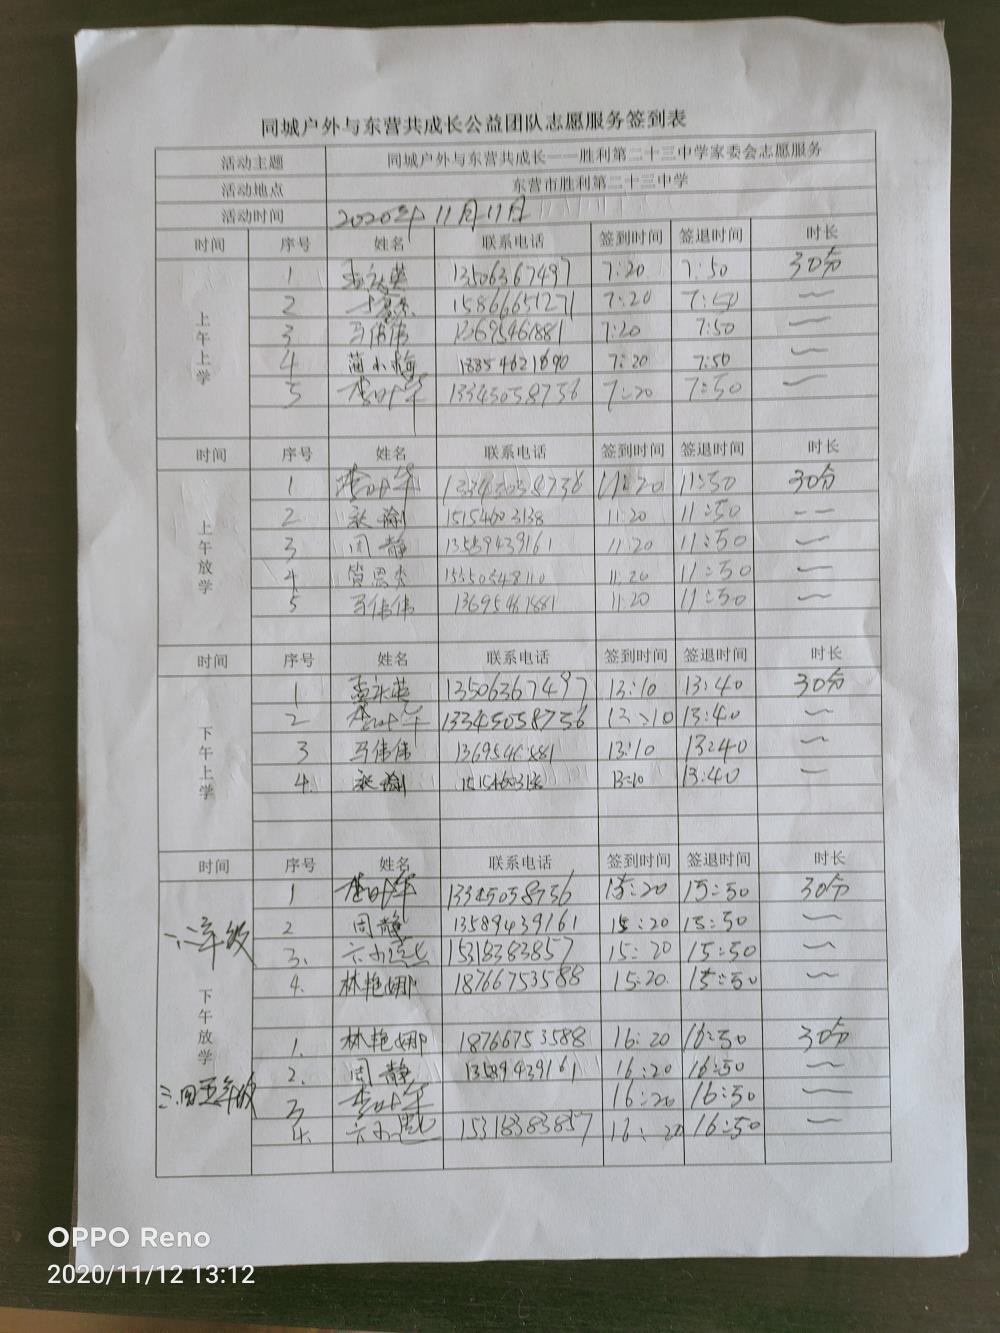 同城户外与东营共成长公益团队志愿服务签到表
活动主题 同城户外与东营共成长——胜利第二十三中学家委会志愿服务
活动地点 东营市胜利第二十三中学
活动时间 2020年11月11日
时间 序号 姓名 联系电话 签到时间 签退时间 时长
上午上学
1 13506367497 7:20 7:50 30分
2 15866651271 7:20 7:50 〜
3 马伟伟 13695461881 7:20 7:50 〜
4 蒲小梅 18854621690 7:20 7:50 〜
5 李叶华 13345058756 7:20 7:50 〜
时间 序号 姓名 联系电话 签到时间 签退时间 时长
上午放学
1 李叶华 13345058756 11:20 11:50 30分
2 11:20 11:50 〜
3 周静 13589439161 11:20 11:50 〜
4 管恩秀 11:20 11:50 〜
5 马伟伟 13695461881 11:20 11:50 〜
时间 序号 姓名 联系电话 签到时间 签退时间 时长
下午上学
1 孟永英 13506367497 13:10 13:40 30分
2 李叶华 13345058756 13:10 13:40 〜
3 马伟伟 13:10 13:40 〜
4. 13:10 13:40 〜
时间 序号 姓名 联系电话 签到时间 签退时间 时长
一、二年级
下午放学
三.四五年级
1 李叶华 13345058756 15:20 15:50 30分
2 周静 13589439161 15:20 15:50 〜
3. 15318383857 15:20 15:50 〜
4. 林艳娜 18766753588 15:20 15:50 〜
1. 林艳娜 18766753588 16:20 16:50 30分
2. 周静 13589439161 16:20 16:50 〜
3 李叶华 16:20 16:50 〜
4. 15318383857 16:20 16:50 〜
OPPO Reno
2020/11/12 13:12